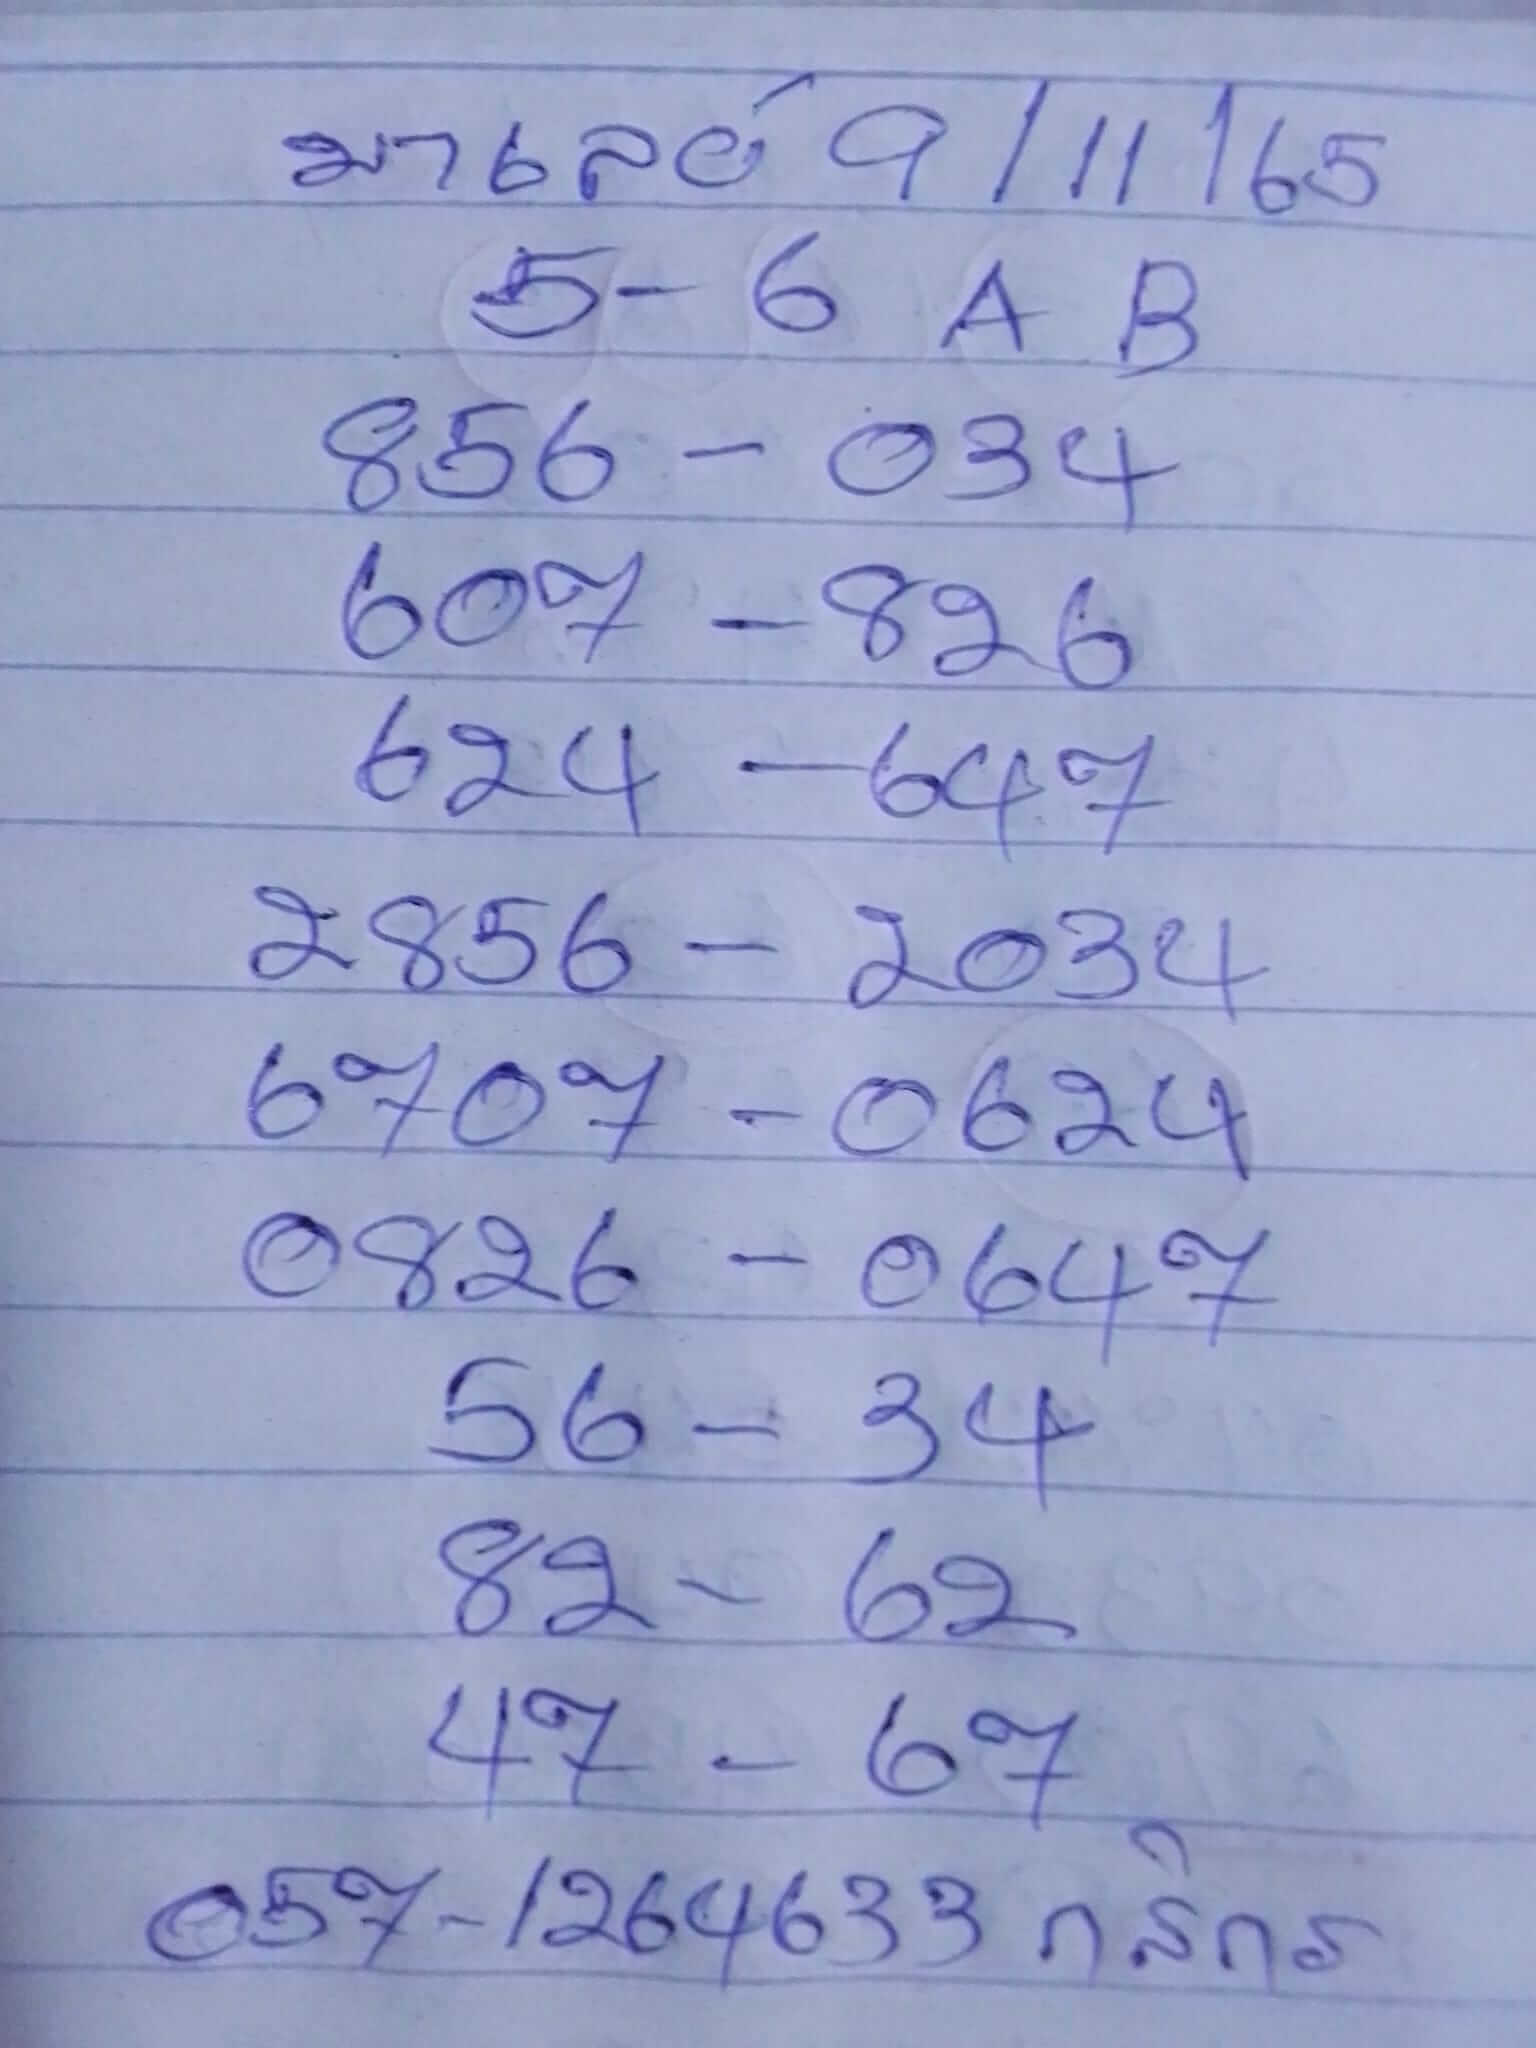 มาเลย์ 9/11/65
5-6 A B
856 - 034
607 - 826
624 - 647
2856 - 2034
6707 - 0624
0826 - 0647
56 - 34
82 - 62
47 - 67
057-1264633 กสิกร